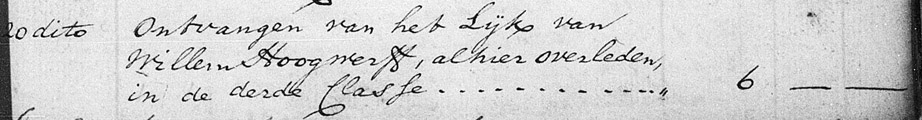 20 dito Ontvangen van het Lijk van
Willem Hoogwerff, alhier overleden,
in de derde Classe . . . . . . . . . . . . „ 6 — —